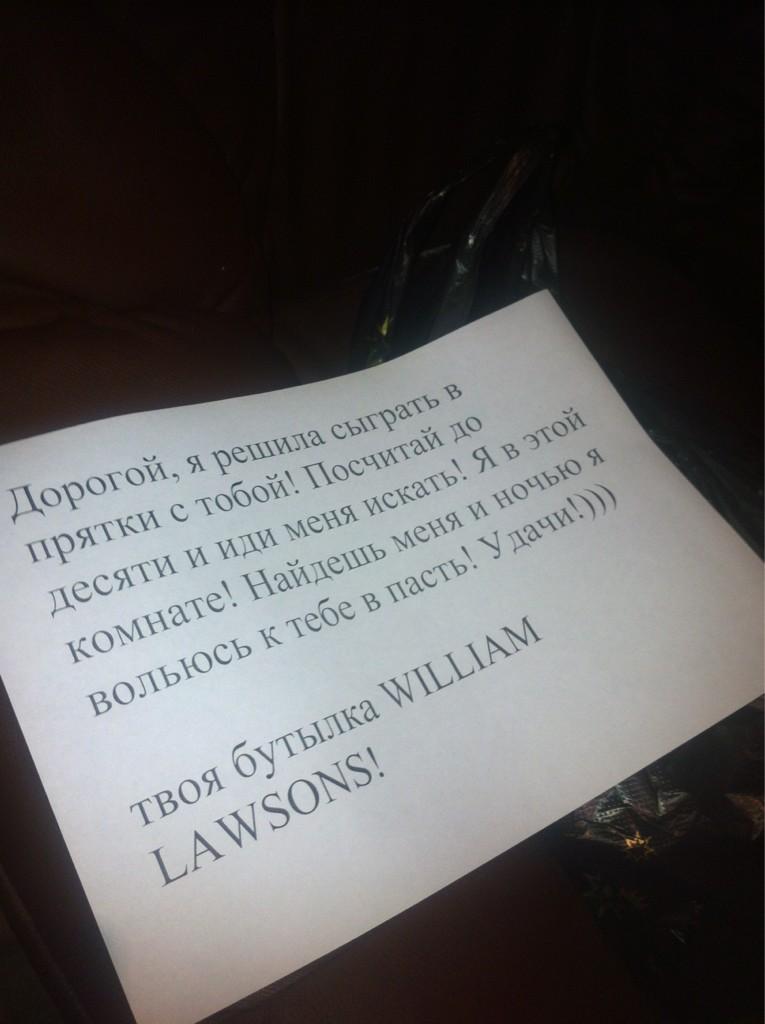 Дорогой, я решила сыграть в
прятки с тобой! Посчитай до
десяти и иди меня искать! Я в этой
комнате! Найдешь меня и ночью я
вольюсь к тебе в пасть! Удачи!)))
твоя бутылка WILLIAM
LAWSONS!